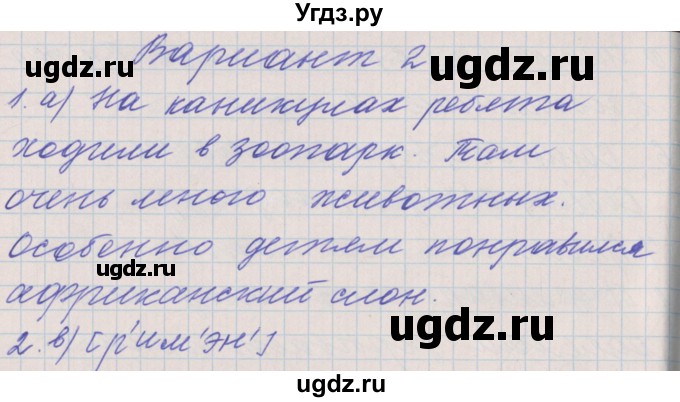 Угдз.ру
Вариант 2
ugdz.ru
1. а) На каникулах ребята
ugdz.ru
ходили в зоопарк. Там
ugdz.ru
очень много животных.
Особенно детям понравился
ugdz.ru
ugdz.ru
африканский слон.
ugdz.ru
2. в) [р'им'эн']
ugdz.ru